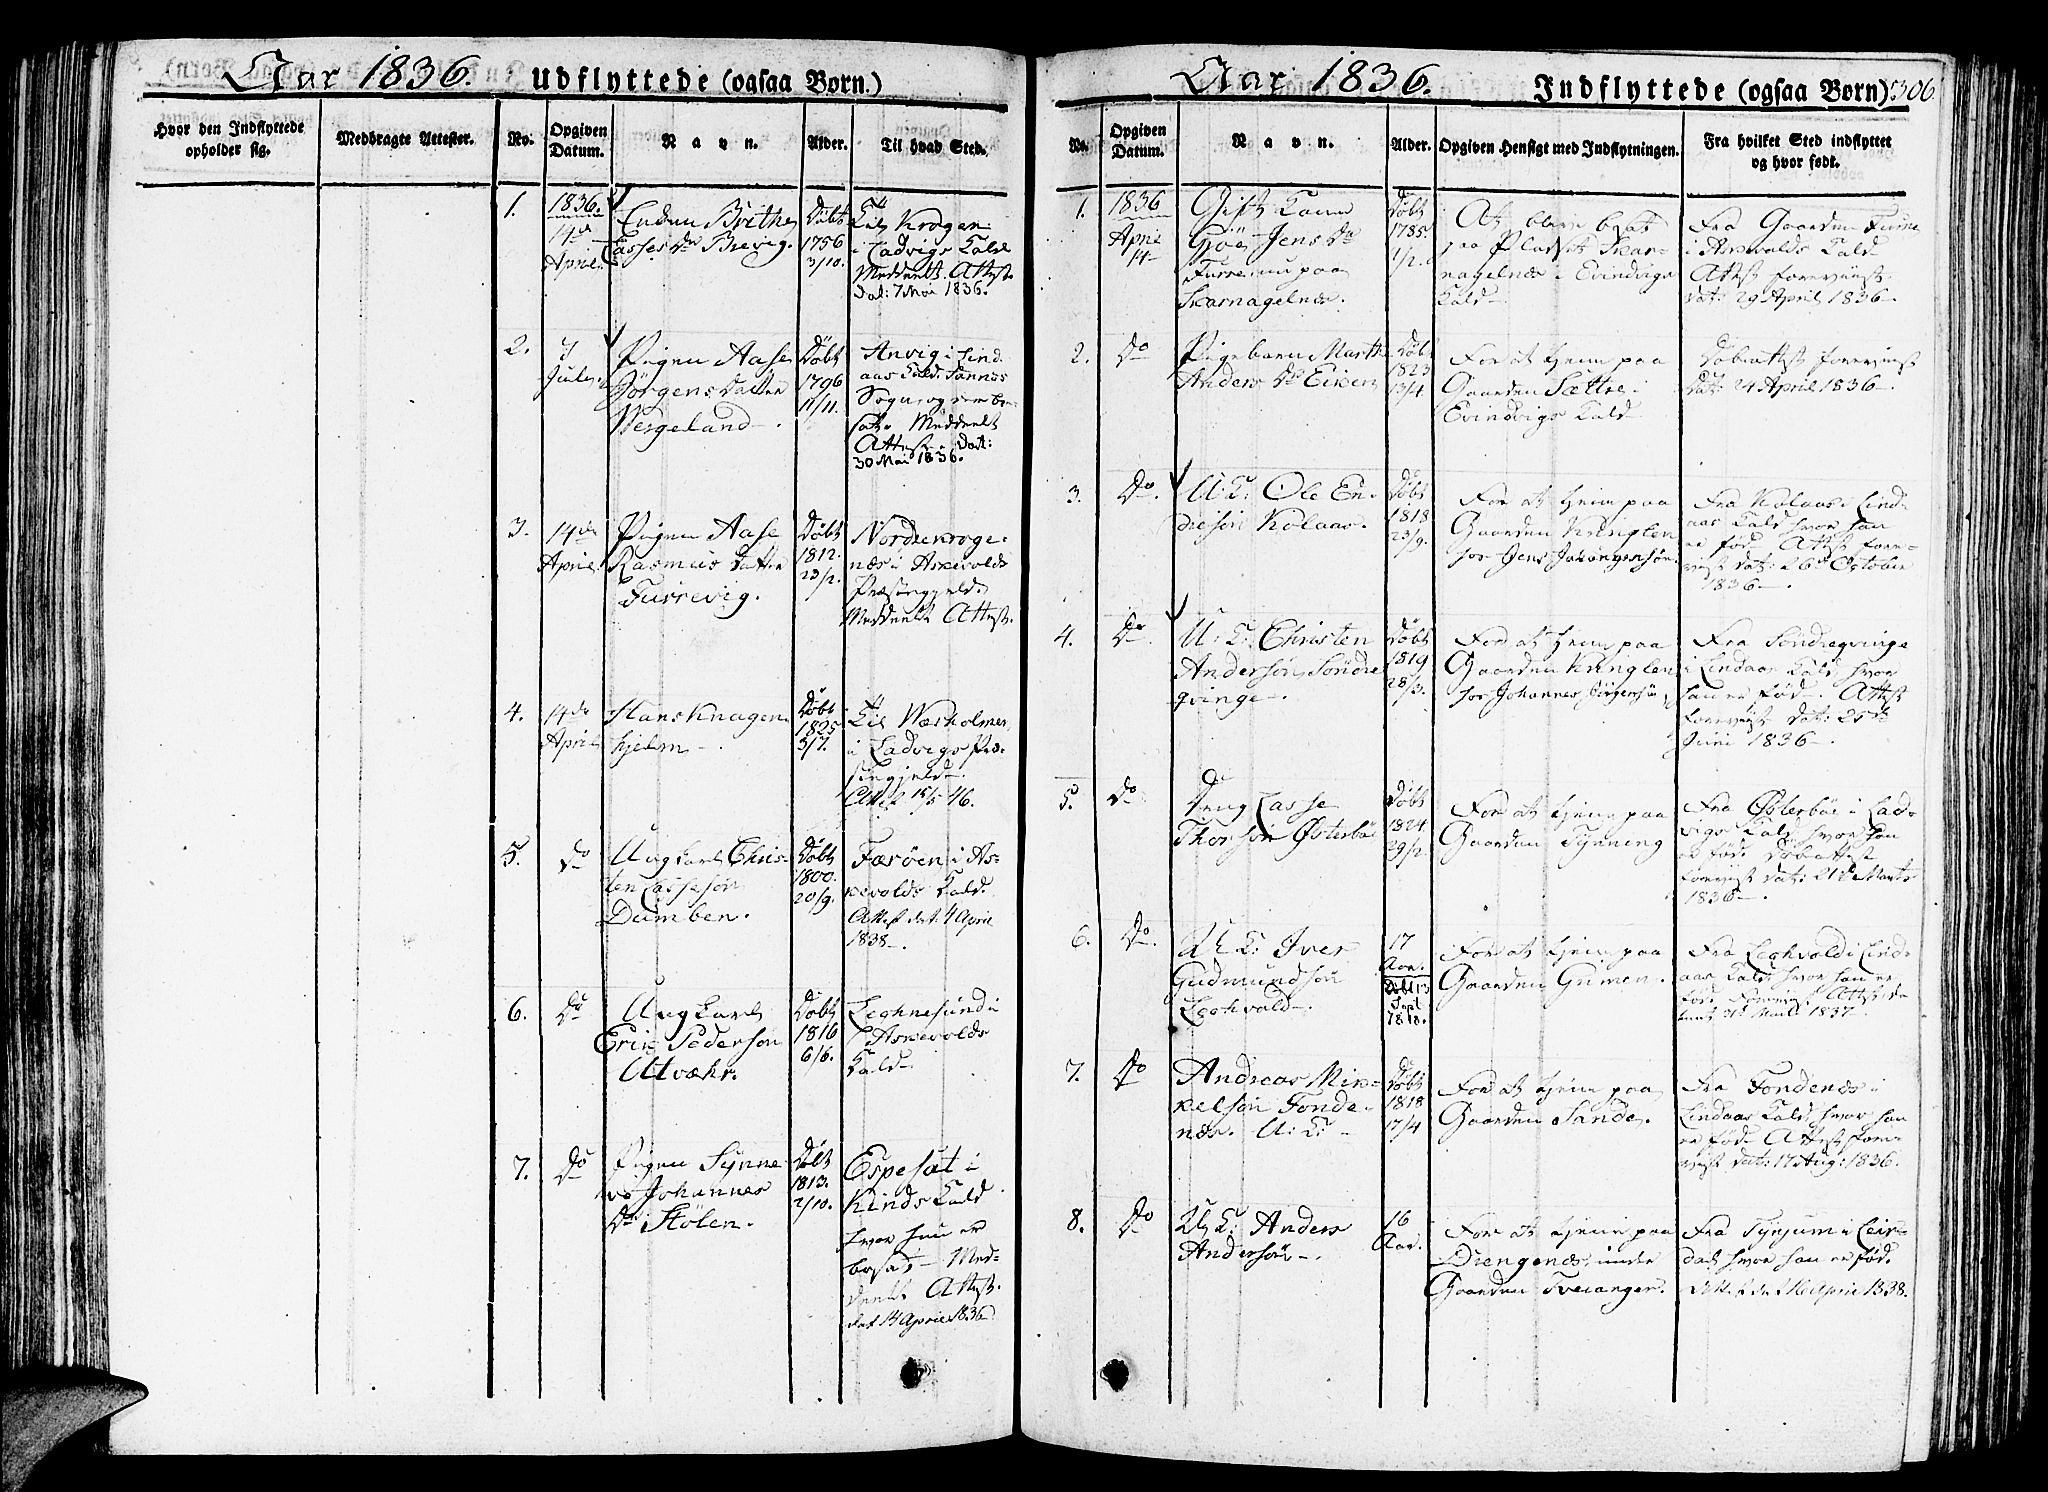 Aar 1836. Udflyttede (ogsaa Børn.)
Hvor den Indflyttede
opholder sig.
Medbragte Attester.
No.
Opgiven
Datum.
Navn.
Alder.
Til hvad Sted.
1.
1836.
14de
April
Enken Brithe
Lasses Dr Brevig.
Døbt
1756
3/10.
Til Krogen
i Ladvigs Kald
Meddeelt Attest
Dat: 7 Mai 1836.
2.
7
July
Pigen Aase
Jörgens Datter
Wergeland
Døbt
1796
11/11.
Anvig i Lind-
aas Kald. Sannes
Sogn, og
Meddeelt
Attest Dat:
30 Mai 1836.
3.
14de
April
Pigen Aase
Rasmus Datter
Furrevig.
Døbt
1812.
23/2.
Nordrekroge-
næs i Askevolds
Præstegjeld.
Meddeelt Attest.
4.
14de
April
Hans Knagen-
hjelm
Døbt
1825
3/7.
Til Wærholmen
i Ladvigs Præ-
stegjeld
Attest 15/5 46.
5.
Do
Ungkarl Chris-
ten Lassesön
Dumben.
Døbt
1800.
20/9.
Færöen i As-
kevolds Kald.
Attest dat. 4 April
1838.
6.
Do
Ungkarl
Erik Pedersön
Utvæhr.
Døbt
1816
6/6.
Leghnesund i
Askevolds
Kald
7.
Do
Pigen Synne-
ve Johannes
Dr Stölen.
Døbt
1813.
2/10.
Espeset i
Kinds Kald
hvor hun er
bosat, Med-
deelt Attest.
dat 14 April 1836
Aar 1836. Indflyttede (ogsaa Børn) 306.
No.
Opgiven
Datum.
Navn.
Alder.
Opgiven Hensigt med Indflytningen.
Fra hvilket Sted indflyttet
og hvor født.
1.
1836
April
14
Gift Kone
Gjöe Jens Dr
Furrenu paa
Skarnagelnæs.
Døbt
1785.
1/2.
At blive boesat
paa Pladset Skar-
nagelnæs i Evindvigs
Kald
Fra Gaarden Furne
i Askevolds Kald
Attest foreviist
dat: 29 April 1836
2.
Do
Pigebarn Marthe
Anders Dr Eiken
Døbt
1823
13/4.
For at tjene paa
Gaarden Sættre i
Evindvigs Kald
Døbeattest foreviist
Dat: 24 April 1836.
3.
Do.
U: K: Ole En-
dresön Kolaas.
Døbt
1818
23/9.
For at tjene paa
Gaarden Kringlen
hos Jens Johannessön
Fra Kolaas i Lind-
aas Kald hvor han
er fød. Attest fore-
viist dat: 26de October
1836
4.
Do.
U: K: Christen
Andersön Söndre
qvinge.
Døbt
1819
28/3.
For at tjene paa
Gaarden Kringlen
hos Johannes Jörgensön
Fra Söndreqvinge
i Lindaas Kald hvor
han er fød. Attest
foreviist dat: 25de
Juni 1836.
5.
Do
Dreng Lasse
Thorsön Østerböe
Døbt
1824.
29/2.
For at tjene paa
Gaarden Tynning
Fra Østerböe i Lad-
vigs Kald hvor han
er fød. Døbeattest
foreviist dat: 21de Marts
1836.
6.
Do.
U: K: Iver
Gudmundsön
Leghvold.
17
Aar.
Døbt 13
Sept
1818.
For at tjene paa
Gaarden Grinen.
Fra Leghvold i Lind-
aas Kald hvor han er
fød. Foreviist Attest da-
1837.
7.
Do
Andreas Mik-
kelsön Fonde-
næs. U: K:
Døbt
1818
17/4
For at tjene paa
Gaarden Sande.
Fra Fondenæs i
Lindaas Kald, hvor han
er fød. Attest fore-
viist dat: 17 Aug: 1836.
8.
Do
U: K: Anders
Andersön.
16
Aar.
For at tjene paa
Drengenæs, under
Gaarden Tveranger.
Fra Tynjum i Leir-
dal hvor han er fød.
Attest dat 16 April 1838.